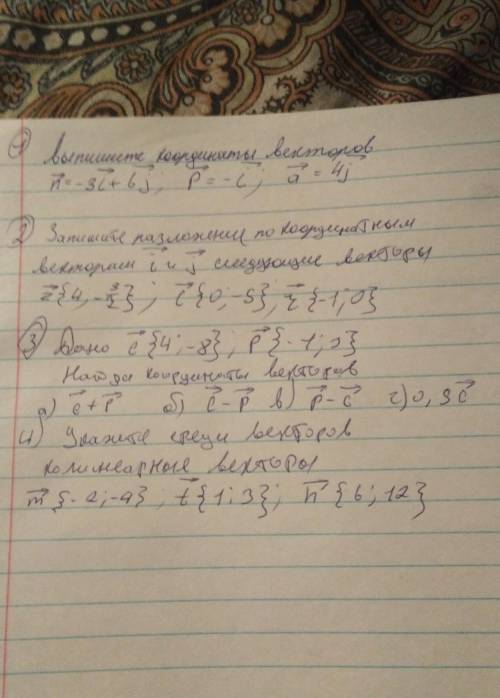 1 Выпишите координаты векторов
n = -3i + 6j; p = -i; a = 4j
2 Запишите разложение по координатным
векторам i и j следующие векторы
z{4, -3/2}; c{0; -5}, r{-1; 0}
3 Дано c{4; -8}; p{-1; 2}
Найти координаты векторов
а) c + p б) c - p в) p - c г) 0,3c
4) Укажите среди векторов
колинеарные векторы
m{-2; -4}; t{1; 3}; n{6; 12}